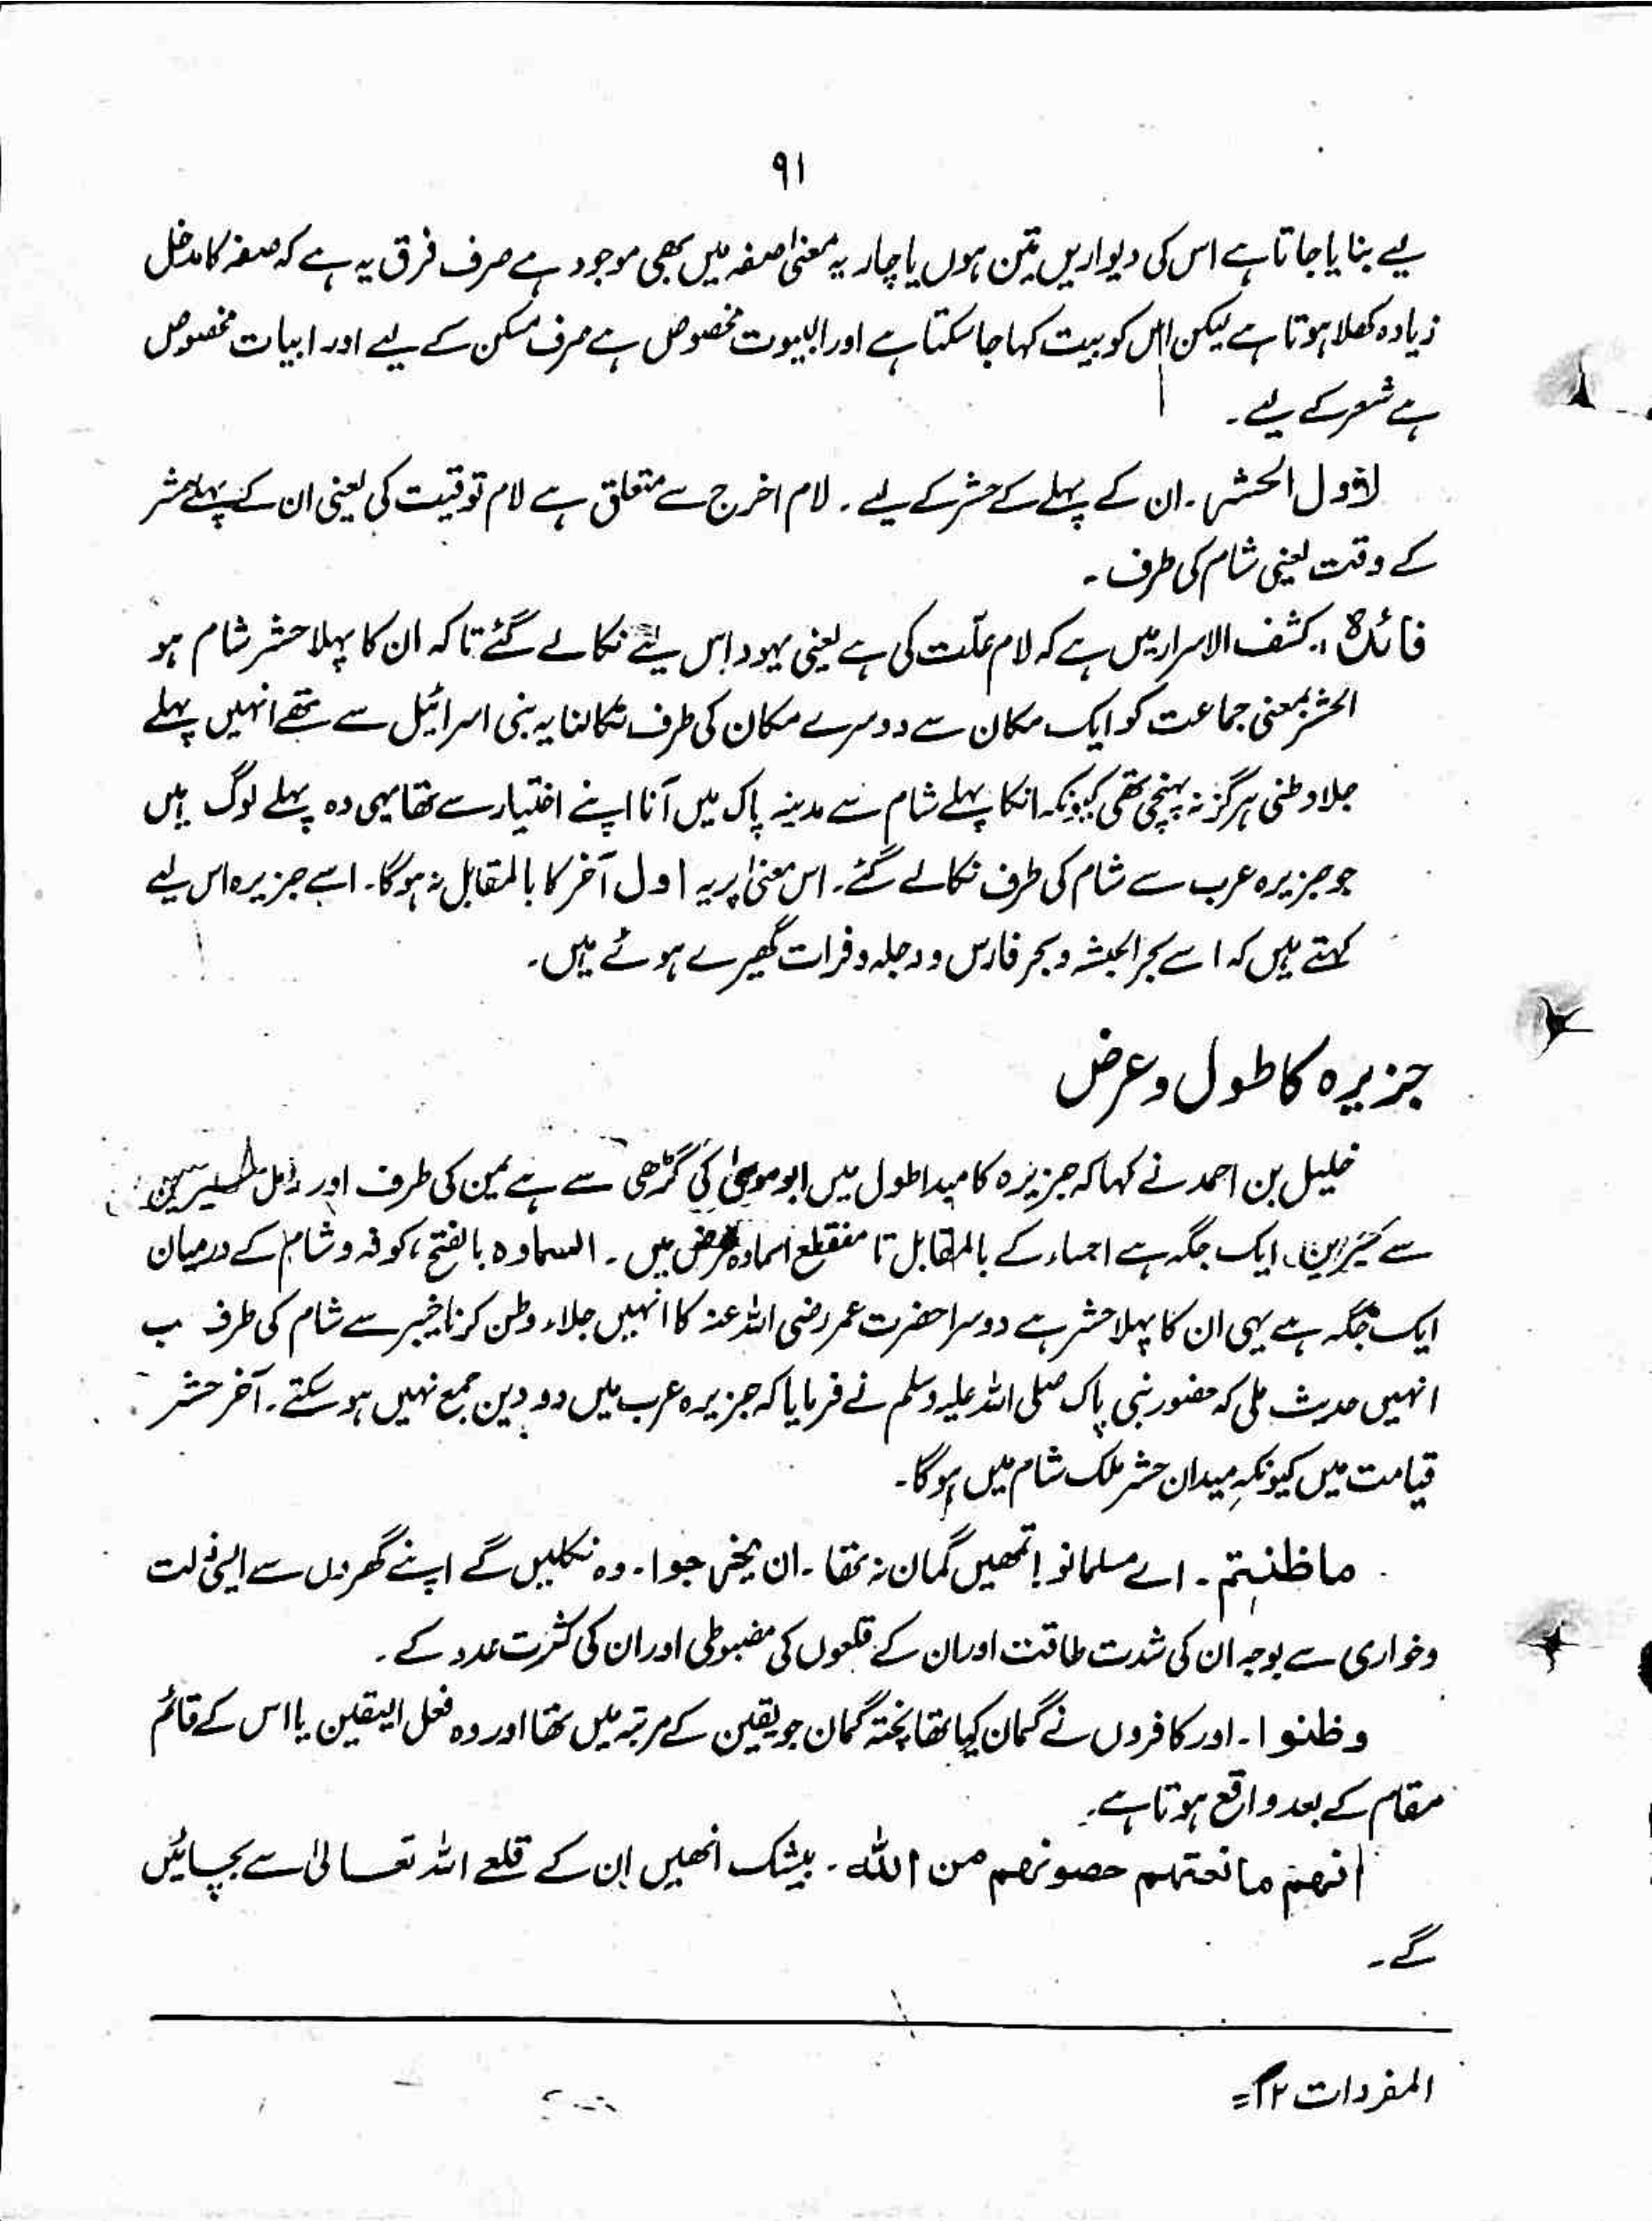 ۹۱
لیے بنایا جاتا ہے اس کی دیواریں تین ہوں یا چار یہ معنیٰ صفہ میں بھی موجود ہے صرف فرق یہ ہے کہ صفہ کا مدخل
زیادہ کھلا ہوتا ہے لیکن اس کو بیت کہا جا سکتا ہے اور البیوت مخصوص ہے صرف مسکن کے لیے اور ابیات مخصوص
ہے شعر کے لیے۔
لاول الحشر۔ ان کے پہلے کے حشر کے لیے۔ لام اخرج سے متعلق ہے لام توقیت کی یعنی ان کے پہلے حشر
کے وقت یعنی شام کی طرف۔
فائدہ :۔ کشف الاسرار میں ہے کہ لام علّت کی ہے یعنی یہود اس لیے نکالے گئے تاکہ ان کا پہلا حشر شام ہو
الحشر بمعنی جماعت کو ایک مکان سے دوسرے مکان کی طرف نکالنا یہ بنی اسرائیل سے تھے انہیں پہلے
جلاوطنی ہرگز نہ پہنچی تھی کیونکہ انکا پہلے شام سے مدینہ پاک میں آنا اپنے اختیار سے تھا یہی وہ پہلے لوگ ہیں
جو جزیرہ عرب سے شام کی طرف نکالے گئے۔ اس معنیٰ پر یہ اول آخر کا بالمقابل نہ ہوگا۔ اسے جزیرہ اس لیے
کہتے ہیں کہ اسے بحر الحبشہ و بحر فارس و دجلہ و فرات گھیرے ہوئے ہیں۔
جزیرہ کا طول و عرض
خلیل بن احمد نے کہا کہ جزیرہ کا مبدا طول میں ابو موسیٰ کی گڑھی سے ہے یمن کی طرف اور رمل
سے یبرین ایک جگہ ہے احساء کے بالمقابل تا منقطع السماوہ عرض میں۔ السماوہ بالفتح، کوفہ و شام کے درمیان
ایک جگہ ہے یہی ان کا پہلا حشر ہے دوسرا حضرت عمر رضی اللہ عنہ کا انہیں جلاء وطن کرنا خیبر سے شام کی طرف ب
انہیں حدیث ملی کہ حضور نبی پاک صلی اللہ علیہ وسلم نے فرمایا کہ جزیرہ عرب میں دو دین جمع نہیں ہو سکتے۔ آخر حشر
قیامت میں کیونکہ میدان حشر ملک شام میں ہوگا۔
ماظننتم۔ اے مسلمانو! تمھیں گمان نہ تھا۔ ان یخرجوا۔ وہ نکلیں گے اپنے گھروں سے ایسی ذلت
وخواری سے بوجہ ان کی شدت طاقت اور ان کے قلعوں کی مضبوطی اور ان کی کثرت عدد کے۔
وظنوا۔ اور کافروں نے گمان کیا تھا پختہ گمان جو یقین کے مرتبہ میں تھا اور وہ فعل الیقین یا اس کے قائم
مقام کے بعد واقع ہوتا ہے۔
انھم مانعتہم حصونہم من اللہ۔ بیشک انھیں ان کے قلعے اللہ تعالیٰ سے بچائیں
گے۔
المفردات ۱۲=